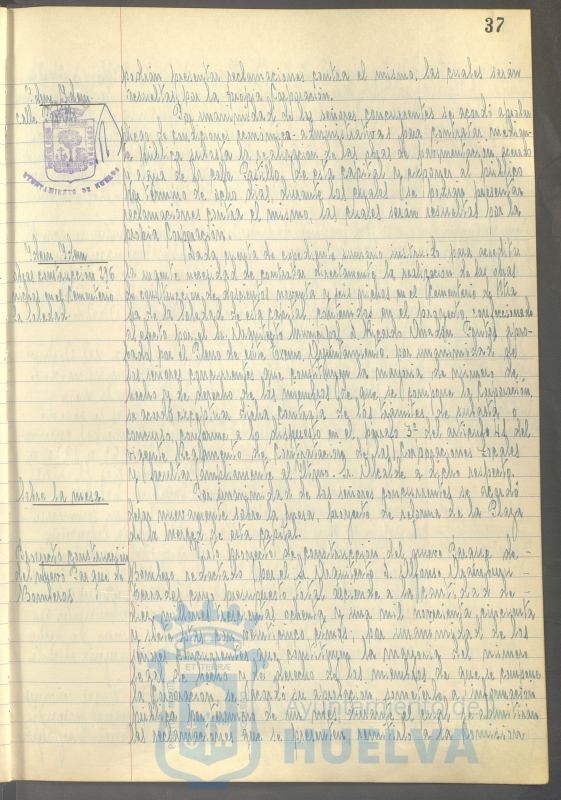 37
podrán presentar reclamaciones contra el mismo, las cuales serán
resueltas por la propia Corporación.
Idem, Idem
calle
Por unanimidad de los señores concurrentes se acordó aprobar
pliego de condiciones económico-administrativas para contratar, median-
te pública subasta la realización de las obras de pavimentación, acerado
y agua de la calle de esta capital y exponer al público
por término de ocho días, durante los cuales se podrán presentar
reclamaciones contra el mismo, las cuales serán resueltas por la
propia Corporación.
AYUNTAMIENTO DE HUELVA
Idem, Idem
obras construcción 296
nichos en el Cementerio
la Soledad.
Dada cuenta de expediente sumario instruido para acreditar
la urgente necesidad de contratar directamente la realización de las obras
de construcción de doscientos noventa y seis nichos en el Cementerio de Ntra
Sra de la Soledad de esta capital, contenidas en el proyecto confeccionado
al efecto por el Sr. Arquitecto Municipal D. Ricardo Anadón Frutos y apro-
bado por el Pleno de este Excmo. Ayuntamiento, por unanimidad de
los señores concurrentes que constituyen la mayoría de número de
hecho y de derecho de los miembros de que se compone la Corporación,
se acordó exceptuar dicha contrata de los trámites de subasta o
concurso, conforme a lo dispuesto en el párrafo 3º del artículo 41 del
vigente Reglamento de Contratación de las Corporaciones Locales
y facultar ampliamente al Iltmo. Sr. Alcalde a dicho respecto.
Sobre la mesa.
Por unanimidad de los señores concurrentes se acordó
dejar nuevamente sobre la mesa, proyecto de reforma de la Plaza
de la Merced de esta capital.
Proyecto construcción
del nuevo Parque de
Bomberos
Visto proyecto de construcción del nuevo Parque de
Bomberos redactado por el Sr. Arquitecto D. Alfonso
cuyo presupuesto total asciende a la cantidad de
diez millones ochenta y un mil novecientas cincuenta
y siete ptas con cinco cmos, por unanimidad de los
señores concurrentes que constituyen la mayoría del número
legal de hecho y de derecho de los miembros de que se compone
la Corporación, se acordó su aprobación, someterlo a información
pública por término de un mes, durante el cual, se admitirán
las reclamaciones que se presenten, remitirlo a la Comisión
Ayuntamiento de
HUELVA